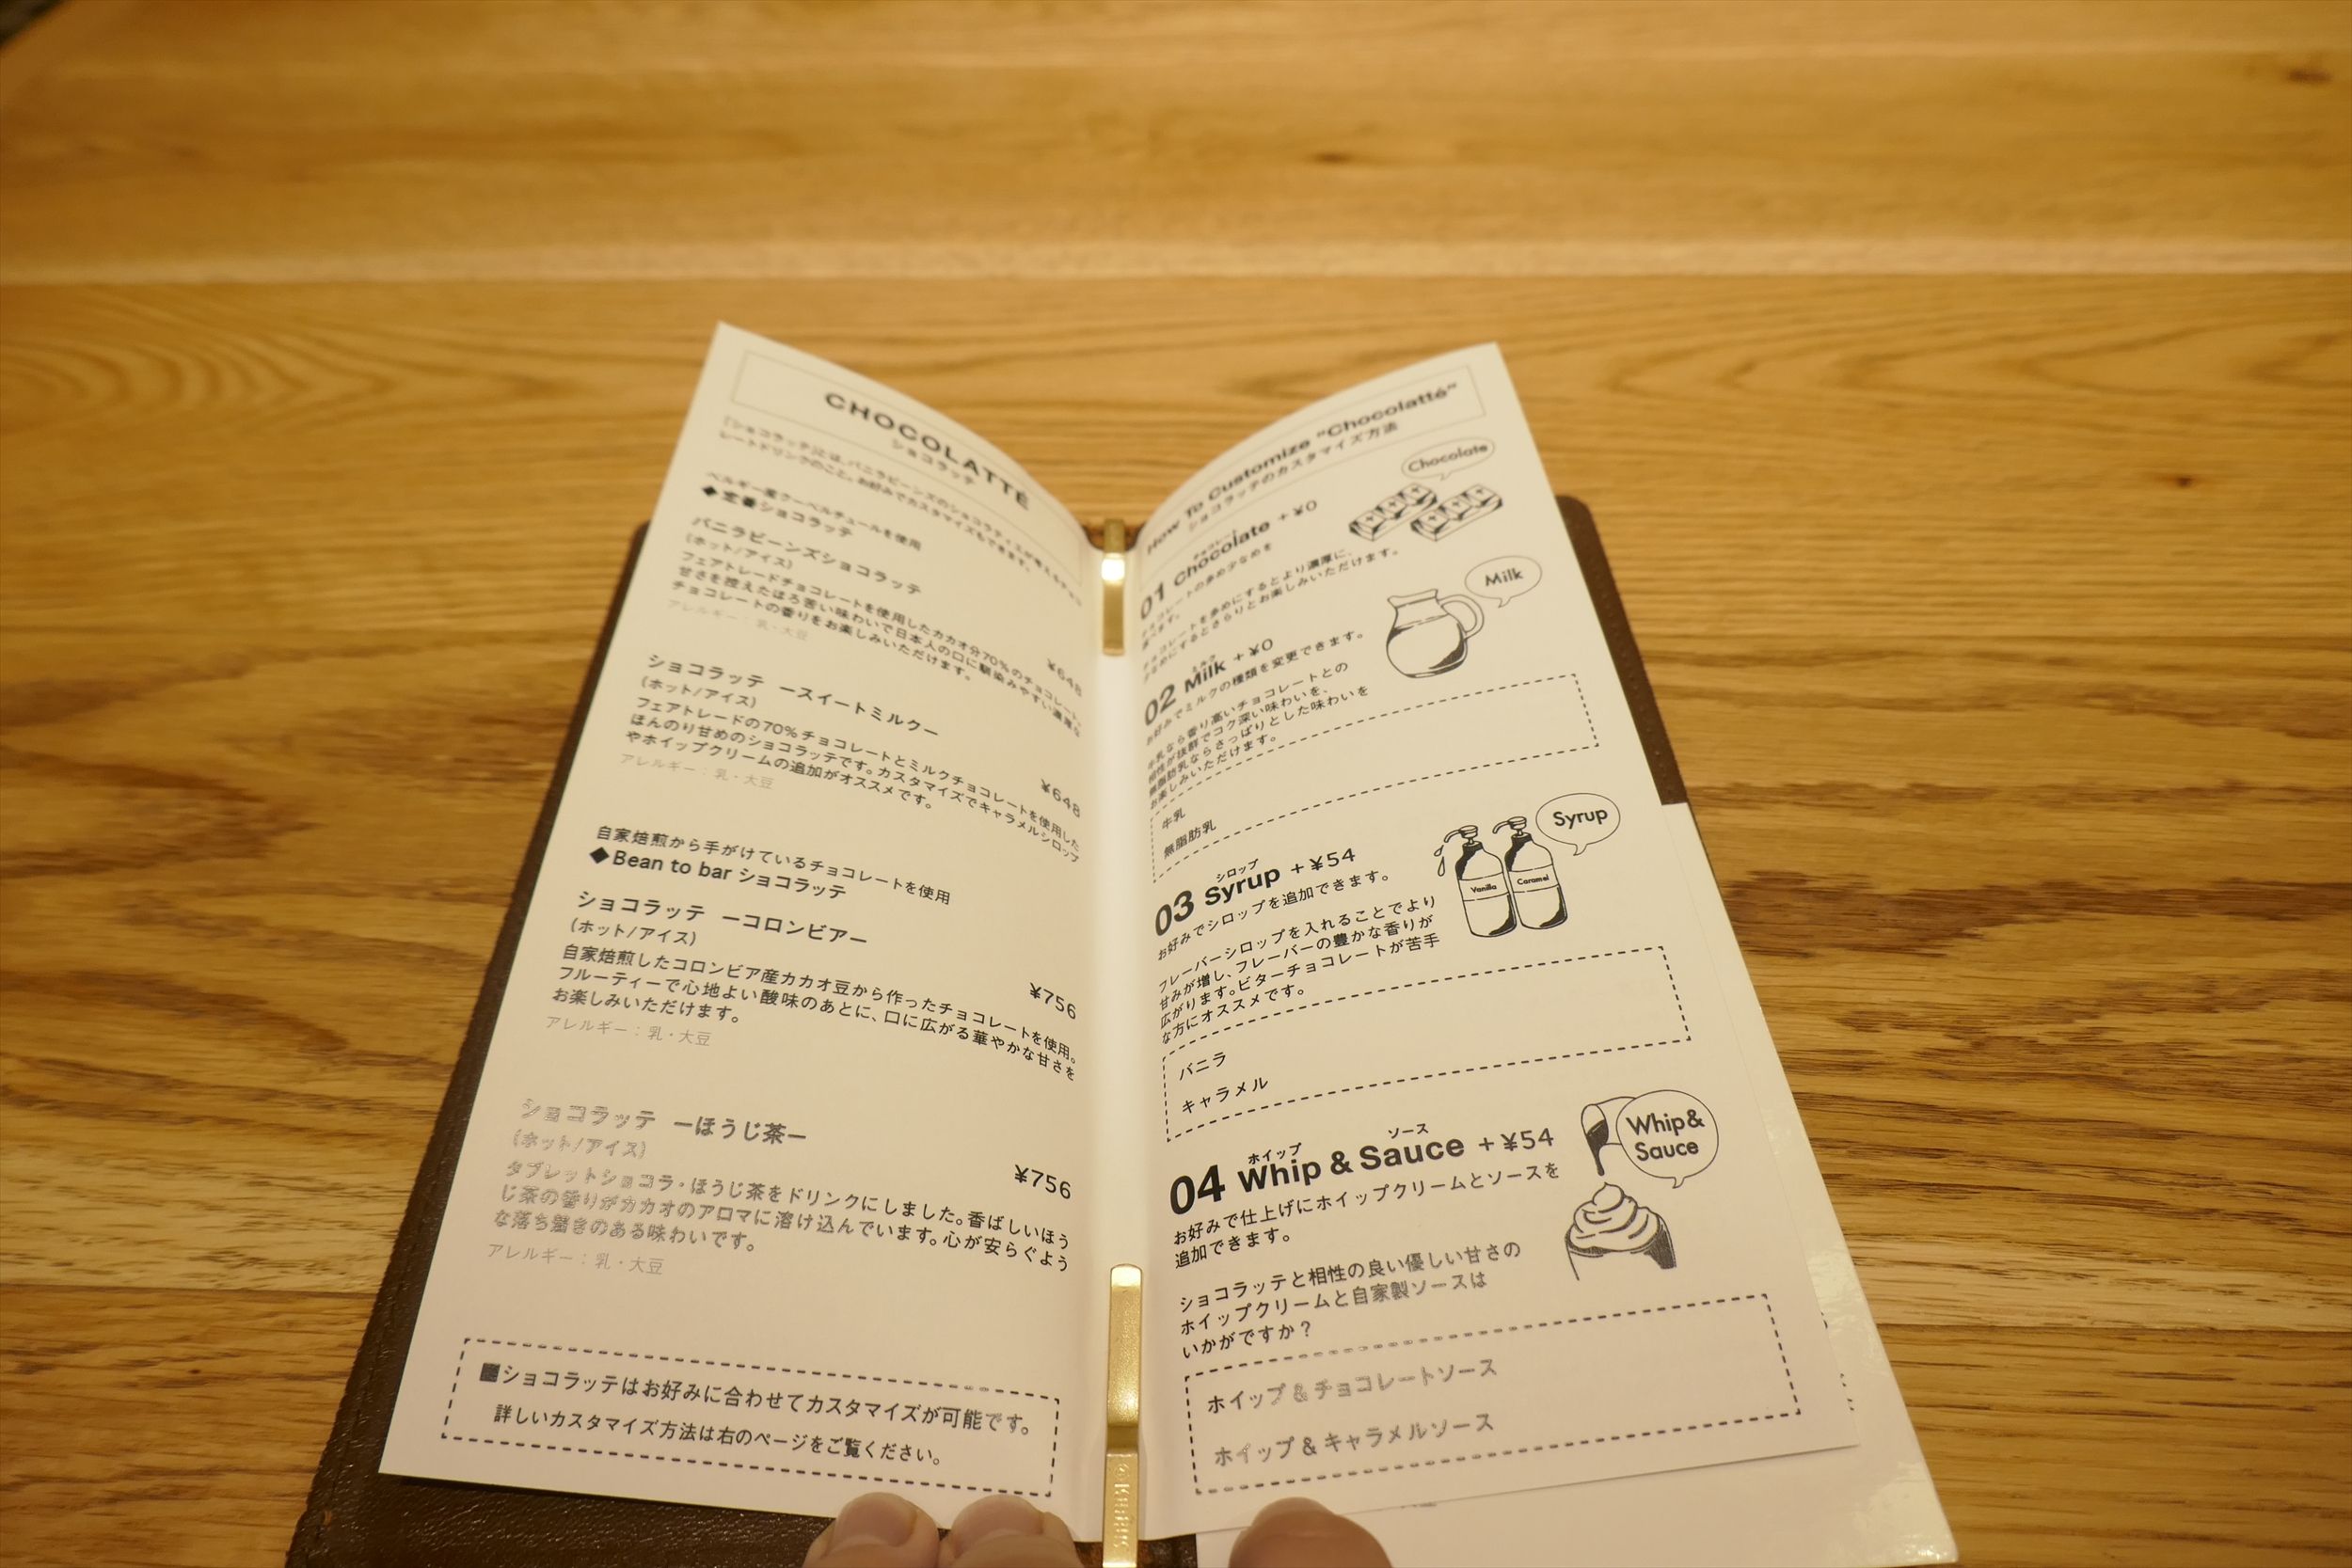 CHOCOLATTÉ
ショコラッテ
「ショコラッテ」とは、バニラビーンズのショコラティエが考えるチョコ
レートドリンクのこと。お好みでカスタマイズもできます。
ベルギー産クーベルチュールを使用
◆定番ショコラッテ
バニラビーンズショコラッテ
(ホット/アイス)
¥648
フェアトレードチョコレートを使用したカカオ分70%のチョコレート。
甘さを控えたほろ苦い味わいで日本人の口に馴染みやすい濃厚な
チョコレートの香りをお楽しみいただけます。
アレルギー：乳・大豆
ショコラッテ ースイートミルクー
(ホット/アイス)
¥648
フェアトレードの70%チョコレートとミルクチョコレートを使用した
ほんのり甘めのショコラッテです。カスタマイズでキャラメルシロップ
やホイップクリームの追加がオススメです。
アレルギー：乳・大豆
自家焙煎から手がけているチョコレートを使用
◆Bean to bar ショコラッテ
ショコラッテ ーコロンビアー
(ホット/アイス)
¥756
自家焙煎したコロンビア産カカオ豆から作ったチョコレートを使用。
フルーティーで心地よい酸味のあとに、口に広がる華やかな甘さを
お楽しみいただけます。
アレルギー：乳・大豆
ショコラッテ ーほうじ茶ー
(ホット/アイス)
¥756
タブレットショコラ・ほうじ茶をドリンクにしました。香ばしいほう
じ茶の香りがカカオのアロマに溶け込んでいます。心が安らぐよう
な落ち着きのある味わいです。
アレルギー：乳・大豆
■ショコラッテはお好みに合わせてカスタマイズが可能です。
詳しいカスタマイズ方法は右のページをご覧ください。
How To Customize "Chocolatté"
ショコラッテのカスタマイズ方法
Chocolate
チョコレート
01 Chocolate +¥0
チョコレートの多め少なめを
選べます。
チョコレートを多めにするとより濃厚に、
少なめにするとさらりとお楽しみいただけます。
Milk
ミルク
02 Milk +¥0
お好みでミルクの種類を変更できます。
牛乳なら香り高いチョコレートとの
相性が抜群でコク深い味わいを、
無脂肪乳ならさっぱりとした味わいを
お楽しみいただけます。
牛乳
無脂肪乳
Syrup
Vanilla
Caramel
シロップ
03 Syrup +¥54
お好みでシロップを追加できます。
フレーバーシロップを入れることでより
甘みが増し、フレーバーの豊かな香りが
広がります。ビターチョコレートが苦手
な方にオススメです。
バニラ
キャラメル
Whip&
Sauce
ホイップ ソース
04 Whip & Sauce +¥54
お好みで仕上げにホイップクリームとソースを
追加できます。
ショコラッテと相性の良い優しい甘さの
ホイップクリームと自家製ソースは
いかがですか？
ホイップ & チョコレートソース
ホイップ & キャラメルソース